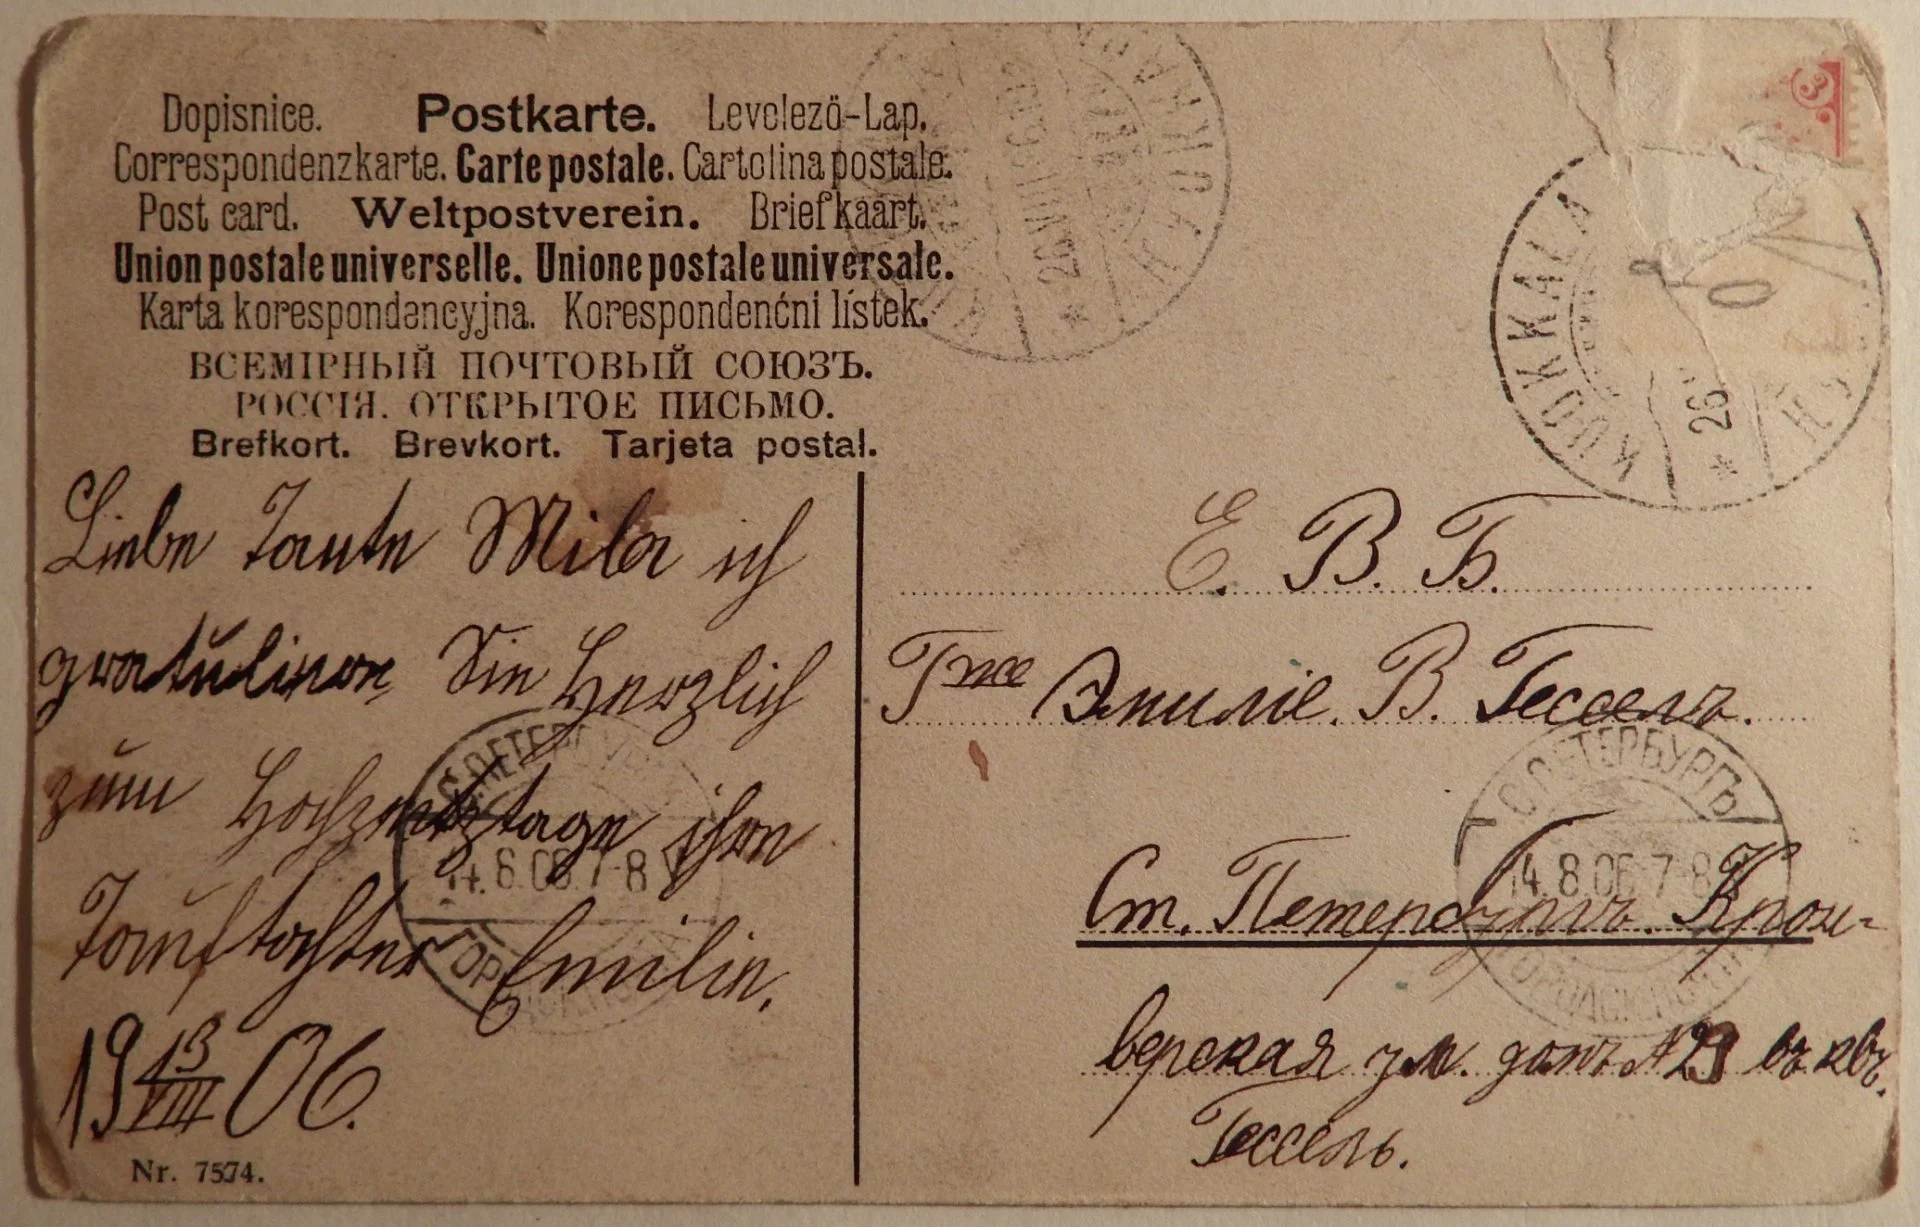 Dopisnice. Postkarte. Levelező-Lap.
Correspondenzkarte. Carte postale. Cartolina postale.
Post card. Weltpostverein. Briefkaart.
Union postale universelle. Unione postale universale.
Karta korespondencyjna. Korespondenčni lístek.
ВСЕМІРНЫЙ ПОЧТОВЫЙ СОЮЗЪ.
РОССІЯ. ОТКРЫТОЕ ПИСЬМО.
Brefkort. Brevkort. Tarjeta postal.
Liebe Tante Mila ich
gratuliere Sie Herzlich
zum Hochzeitstage ihre
Tauftochter Emilie.
19 13/VIII 06.
Nr. 7574.
KUOKKALA
26
3
Е. В. Б.
Гже Эмиліе. В. Гессель.
Ст. Петербургъ. Крон-
верская ул. домъ № 29 въ кв.
Гессель.
С.ПЕТЕРБУРГЪ
14.8.06 7-8
С.ПЕТЕРБУРГЪ
14.8.06 7-8